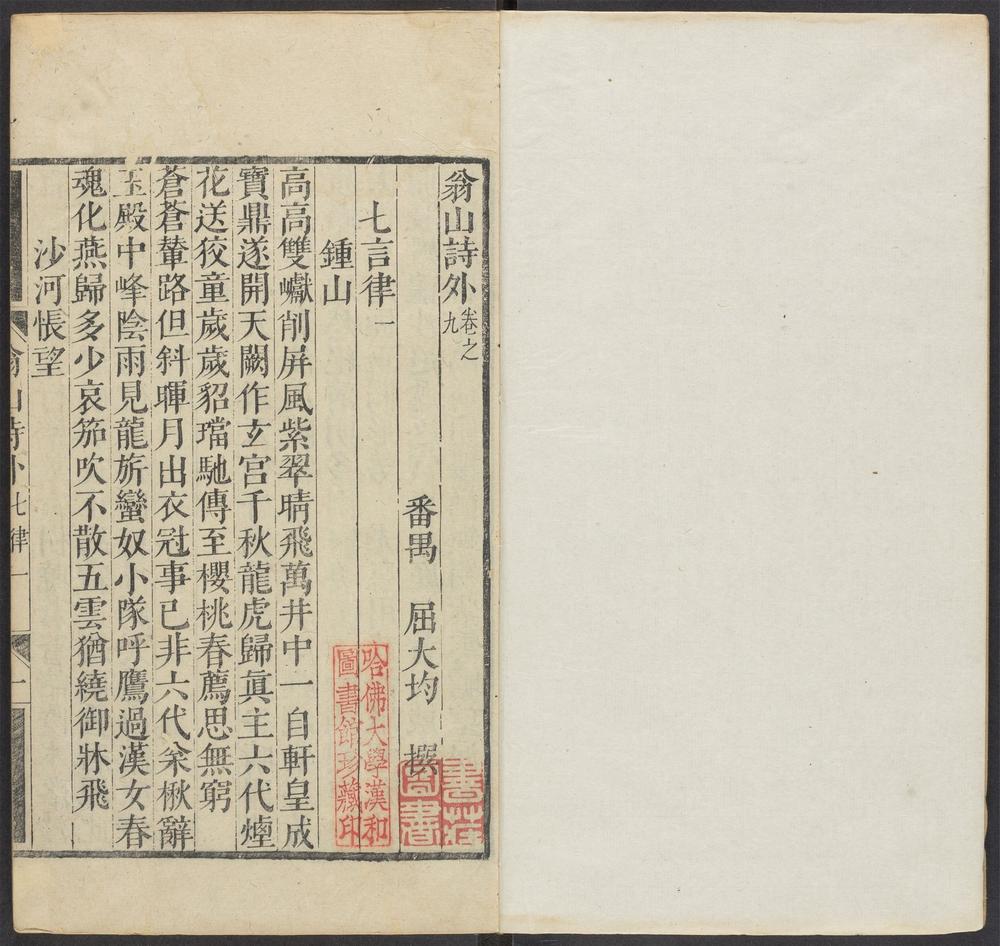 翁山詩外卷之九
番禺　屈大均　撰
七言律一
鍾山
高高雙巘削屏風紫翠晴飛萬井中一自軒皇成
寶鼎遂開天闕作玄宮千秋龍虎歸眞主六代煙
花送狡童歲歲貂璫馳傳至櫻桃春薦思無窮
蒼蒼輦路但斜暉月出衣冠事已非六代粂楸辭
玉殿中峰陰雨見龍旂蠻奴小隊呼鷹過漢女春
魂化燕歸多少哀笳吹不散五雲猶繞御牀飛
沙河悵望
翁山詩外七律一
一
哈佛大學漢和
圖書館珍藏印
圖書